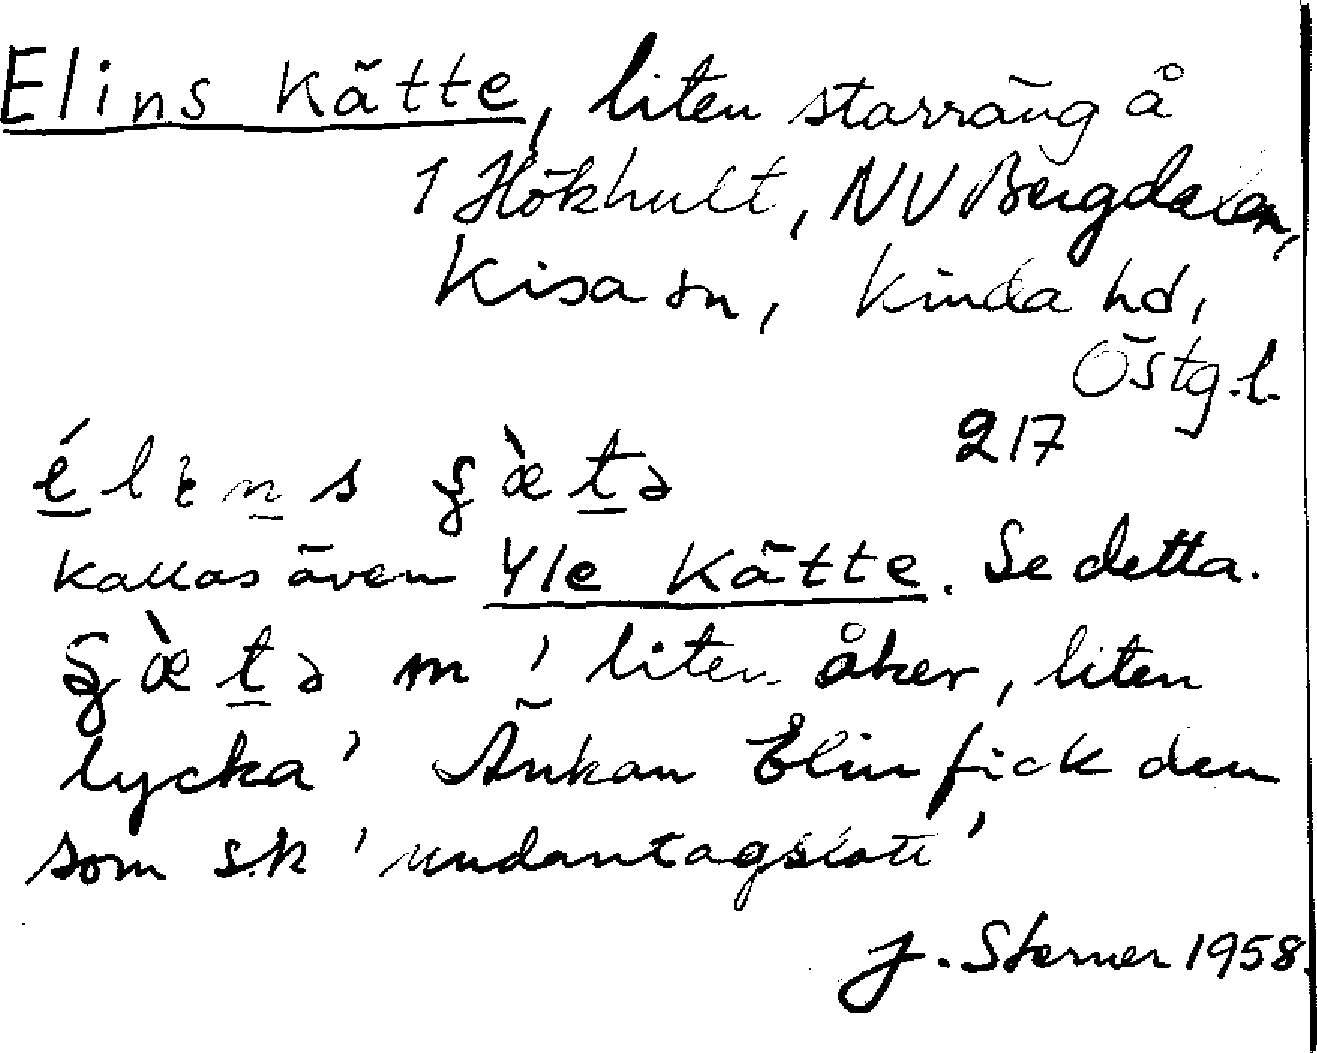 Elins Kätte, liten starräng å
1 Hökhult, NV Bergdalen,
Kisa sn, Kinda hd,
Östg.l.
217
kallas även Yle Kätte. Se detta.
m 'liten åker, liten
lycka' Änkan Elin fick den
som s.k 'undantagslott'
J. Sterner 1958.